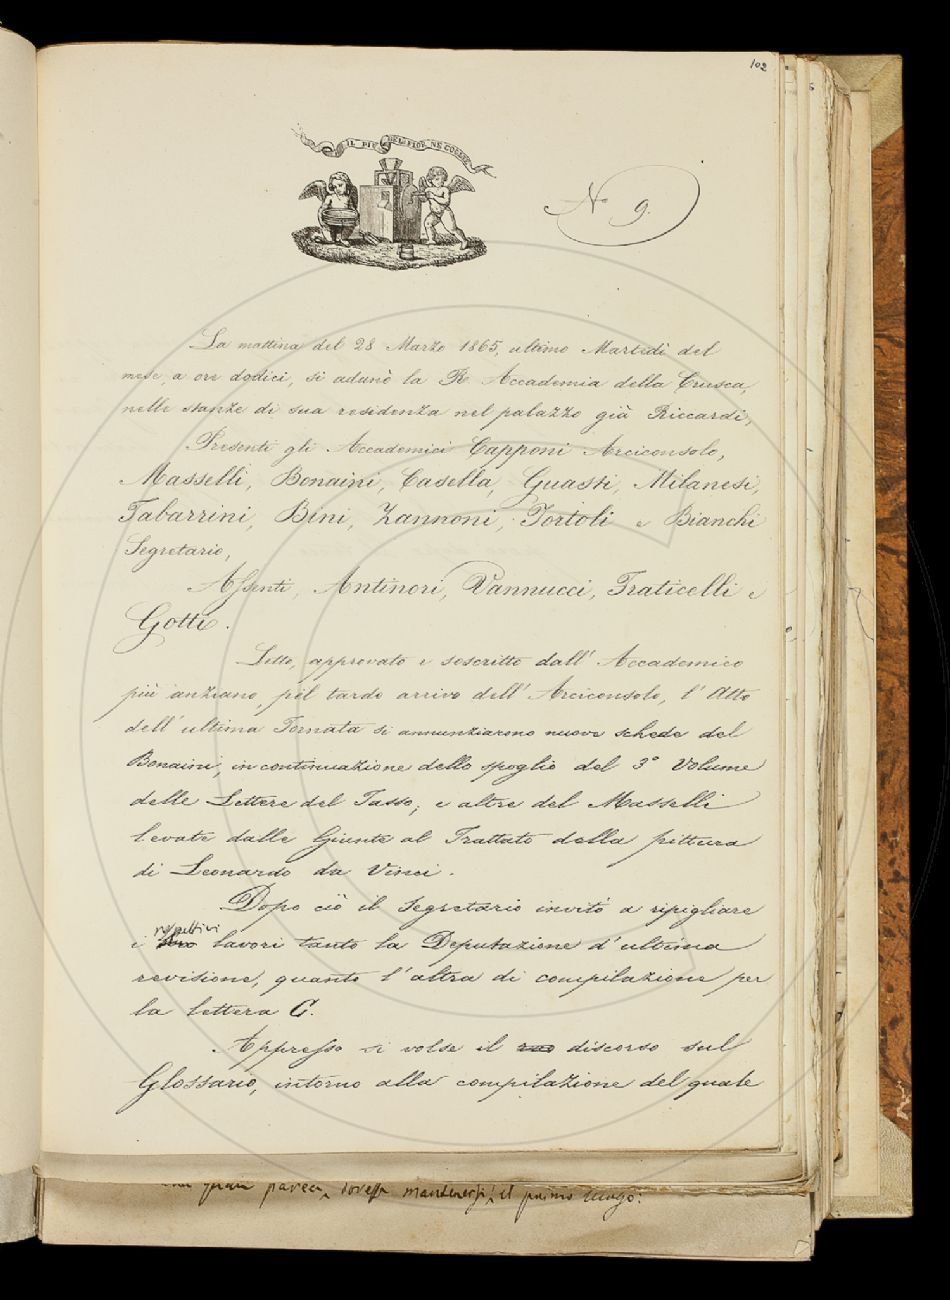 102
IL PIÙ BEL FIOR NE COGLIE
N° 9.
La mattina del 28 Marzo 1865, ultimo Martedì del
mese, a ore dodici, si adunò la R. Accademia della Crusca,
nelle stanze di sua residenza nel palazzo già Riccardi,
Presenti gli Accademici Capponi Arciconsolo,
Masselli, Bonaini, Casella, Guasti, Milanesi,
Tabarrini, Bini, Zannoni, Tortoli e Bianchi
Segretario,
Assenti, Antinori, Vannucci, Fraticelli e
Gotti.
Letto, approvato e soscritto dall' Accademico
più anziano, pel tardo arrivo dell' Arciconsolo, l' Atto
dell' ultima Tornata si annunziarono nuove schede del
Bonaini, in continuazione dello spoglio del 3° Volume
delle Lettere del Tasso; e altre del Masselli
levate dalle Giunte al Trattato della pittura
di Leonardo da Vinci.
Dopo ciò il Segretario invitò a ripigliare
respettivi
i lavori tanto la Deputazione d' ultima
revisione, quanto l' altra di compilazione per
la lettera C.
Appresso si volse il discorso sul
Glossario, intorno alla compilazione del quale
parea, dovesse mantenersi il primo luogo: